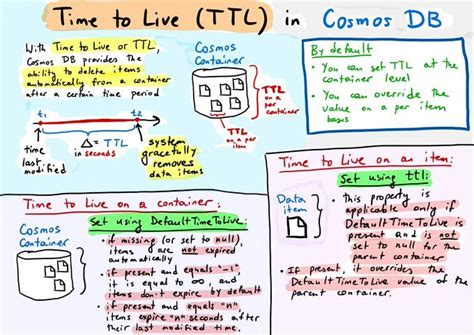 Time to Live (TTL) in Cosmos DB
With Time to Live or TTL,
Cosmos DB provides the
ability to delete items
automatically from a container
after a certain time period
t₁
t₂
Δ = TTL
in seconds
time
last
modified
system
gracefully
removes
data items
Cosmos
Container
TTL
on a
per
container
TTL
on a
per item
By default
• You can set TTL at the
container level
• You can override the
value on a per item
basis
Time to Live on a container:
Set using DefaultTimeToLive:
Cosmos
Container
• if missing (or set to null),
items are not expired
automatically
• if present and equals "-1"
it is equal to ∞, and
items don't expire by default
• if present and equals "n"
items expire "n" seconds after
their last modified time
Time to Live on an item:
Set using ttl:
Data
item
• this property is
applicable only if
DefaultTimeToLive is
present and is not
set to null for the
parent container
• If present, it overrides the
DefaultTimeToLive value of the
parent container.